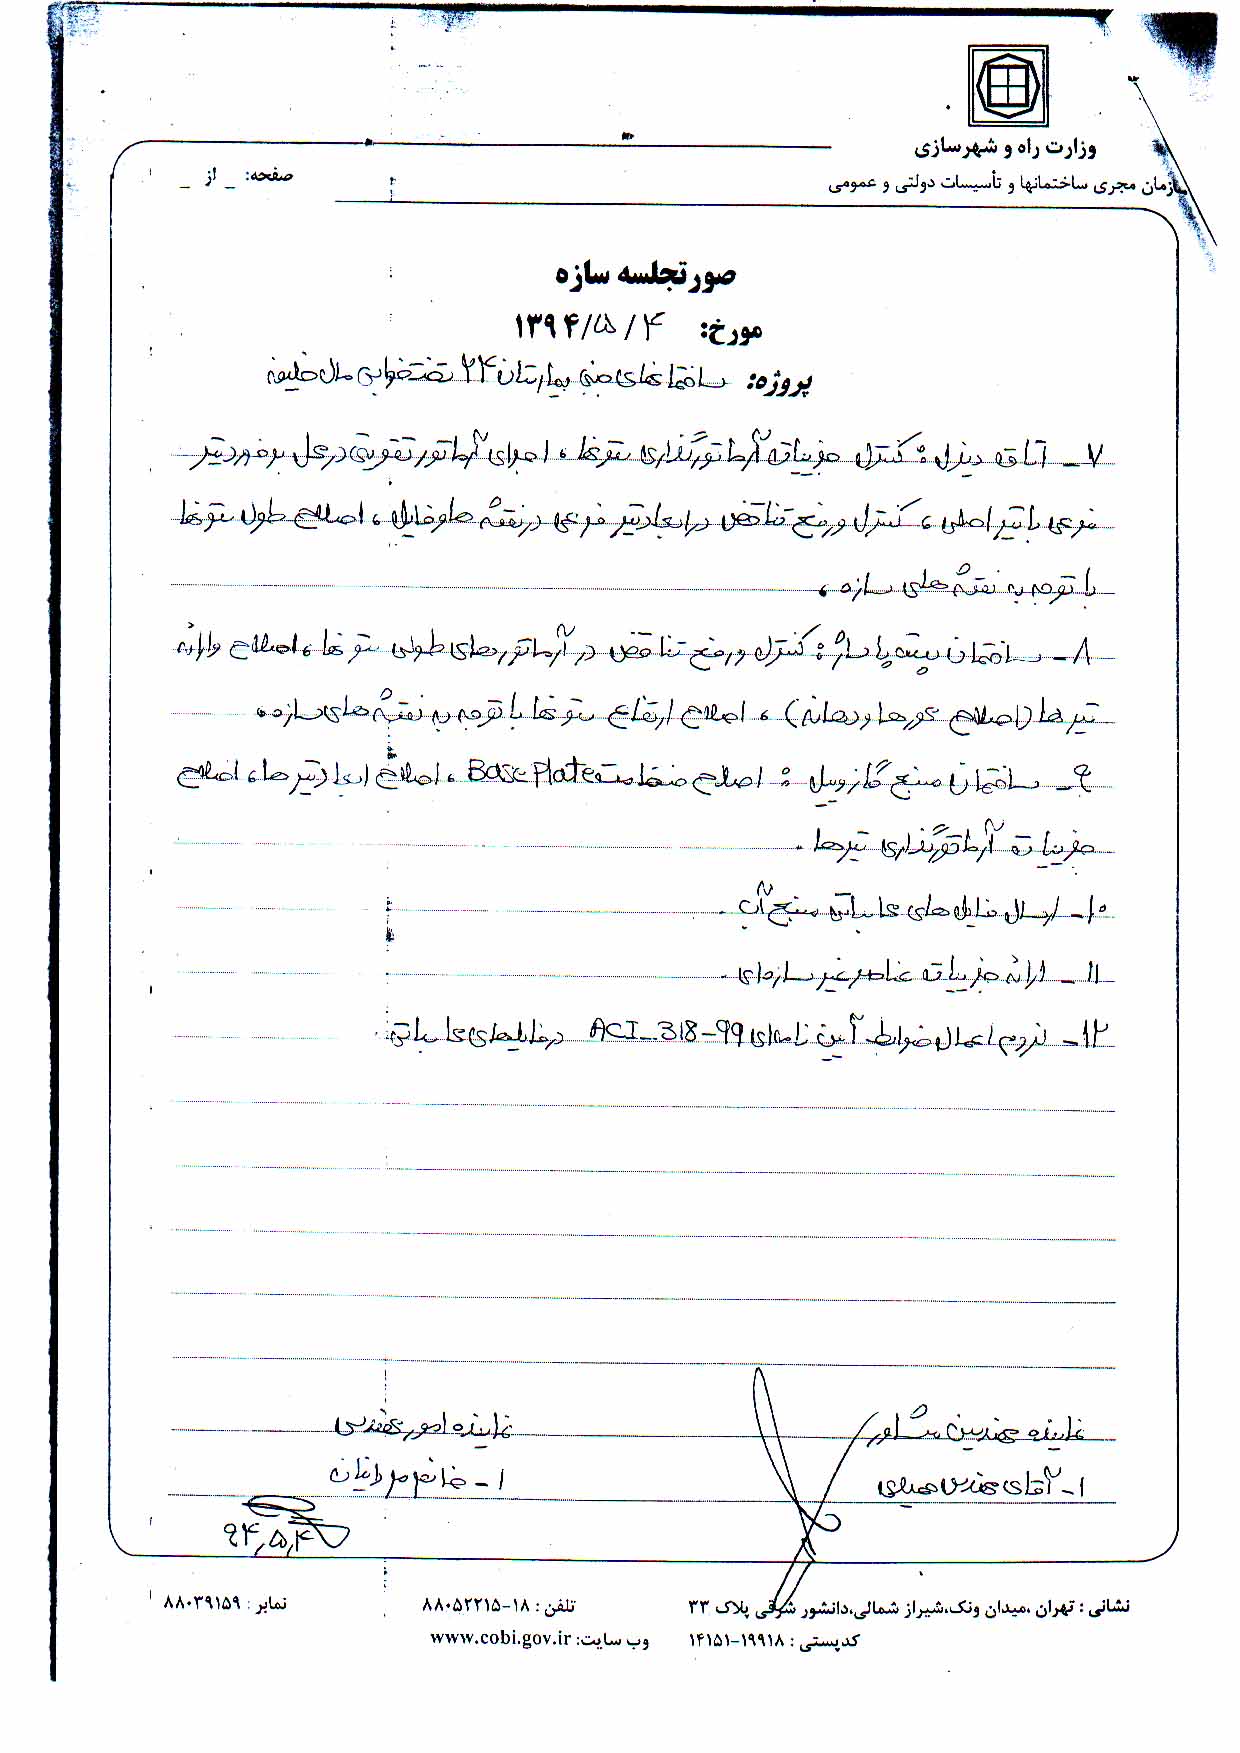 وزارت راه و شهرسازی
سازمان مجری ساختمانها و تأسیسات دولتی و عمومی
صفحه: _ از _
صورتجلسه سازه
مورخ: ۱۳۹۴/۵/۴
پروژه: ساختمانهای جنبی بیمارستان ۲۴ تختخوابی مال خلیفه
۷- اتاق دیزل: کنترل جزییات آرماتورگذاری ستونها، اجرای آرماتور تقویتی در محل برخورد تیر
فرعی با تیر اصلی، کنترل و رفع تناقض در ابعاد تیر فرعی در نقشه ها و فایل، اصلاح طول ستونها
با توجه به نقشه های سازه،
۸- ساختمان پیت پاساژ: کنترل و رفع تناقض در آرماتورهای طولی ستونها، اصلاح و ارائه
تیرها (اصلاح محورها و دهانه)، اصلاح ارتفاع ستونها با توجه به نقشه های سازه.
۹- ساختمان منبع گازوییل: اصلاح ضخامت Base Plate، اصلاح ابعاد تیرها، اصلاح
جزییات آرماتورگذاری تیرها.
۱۰- ارسال فایل های محاسباتی منبع آب.
۱۱- ارائه جزییات عناصر غیر سازه‌ای.
۱۲- لزوم اعمال ضوابط آیین نامه‌ای ACI-318-99 در فایلهای محاسباتی.
نماینده مهندسین مشاور
نماینده امور مهندسی
۱- آقای مهندس
۱- خانم
۹۴,۵,۴
نشانی: تهران، میدان ونک، شیراز شمالی، دانشور شرقی پلاک ۳۳
تلفن: ۱۸-۸۸۰۵۲۲۱۵
نمابر: ۸۸۰۳۹۱۵۹
کدپستی: ۱۹۹۱۸-۱۴۱۵۱
وب سایت: www.cobi.gov.ir